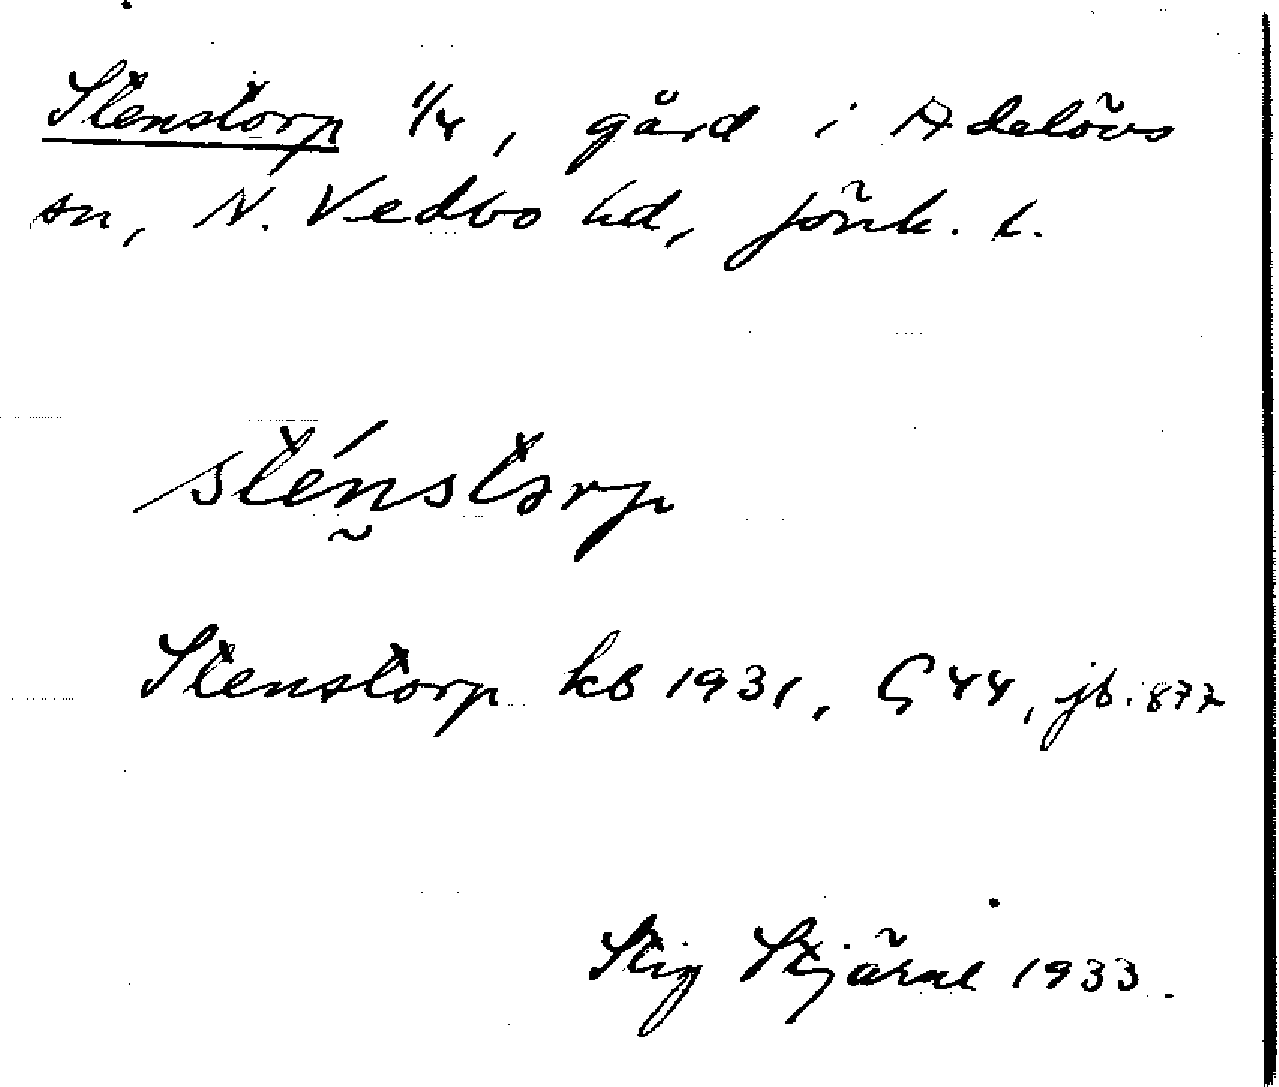 Stenstorp 1/4, gård i Adelövs
sn, N. Vedbo hd, Jönk. l.
sténstorp
Stenstorp kb 1931, G 44, jb. 877
Stig Stjärne 1933.